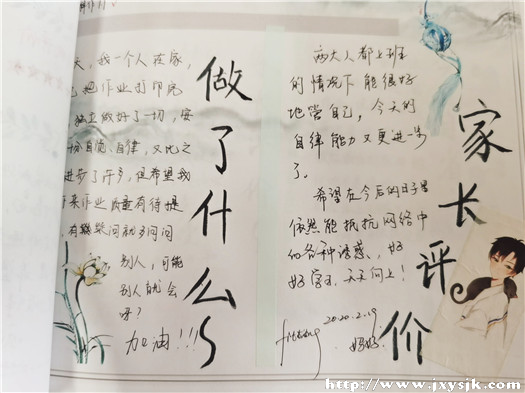 天，我一个人在家，
把作业打印完
独立做好了一切，安
自律，又比之
进步了许多，但希望我
来作业质量有待提
有疑问就多问问
别人，可能
别人就会
呀？
加油！！！
做了什么
两大人都上班
的情况下能很好
地管自己，今天的
自律能力又更进一步
了。
希望在今后的日子里
依然能抵抗网络中
的各种诱惑，好
好学习，天天向上！
2020.2.19
妈妈
家长评价
http://www.jxysjk.com/